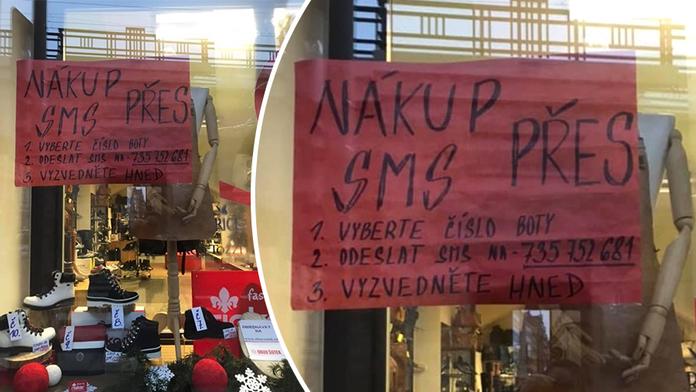 NÁKUP PŘES
SMS
1. VYBERTE ČÍSLO BOTY
2. ODESLAT SMS NA - 735 752 681
3. VYZVEDNĚTE HNED
NÁKUP
SMS PŘES
1. VYBERTE ČÍSLO BOTY
2. ODESLAT SMS NA - 735 752 681
3. VYZVEDNĚTE HNED